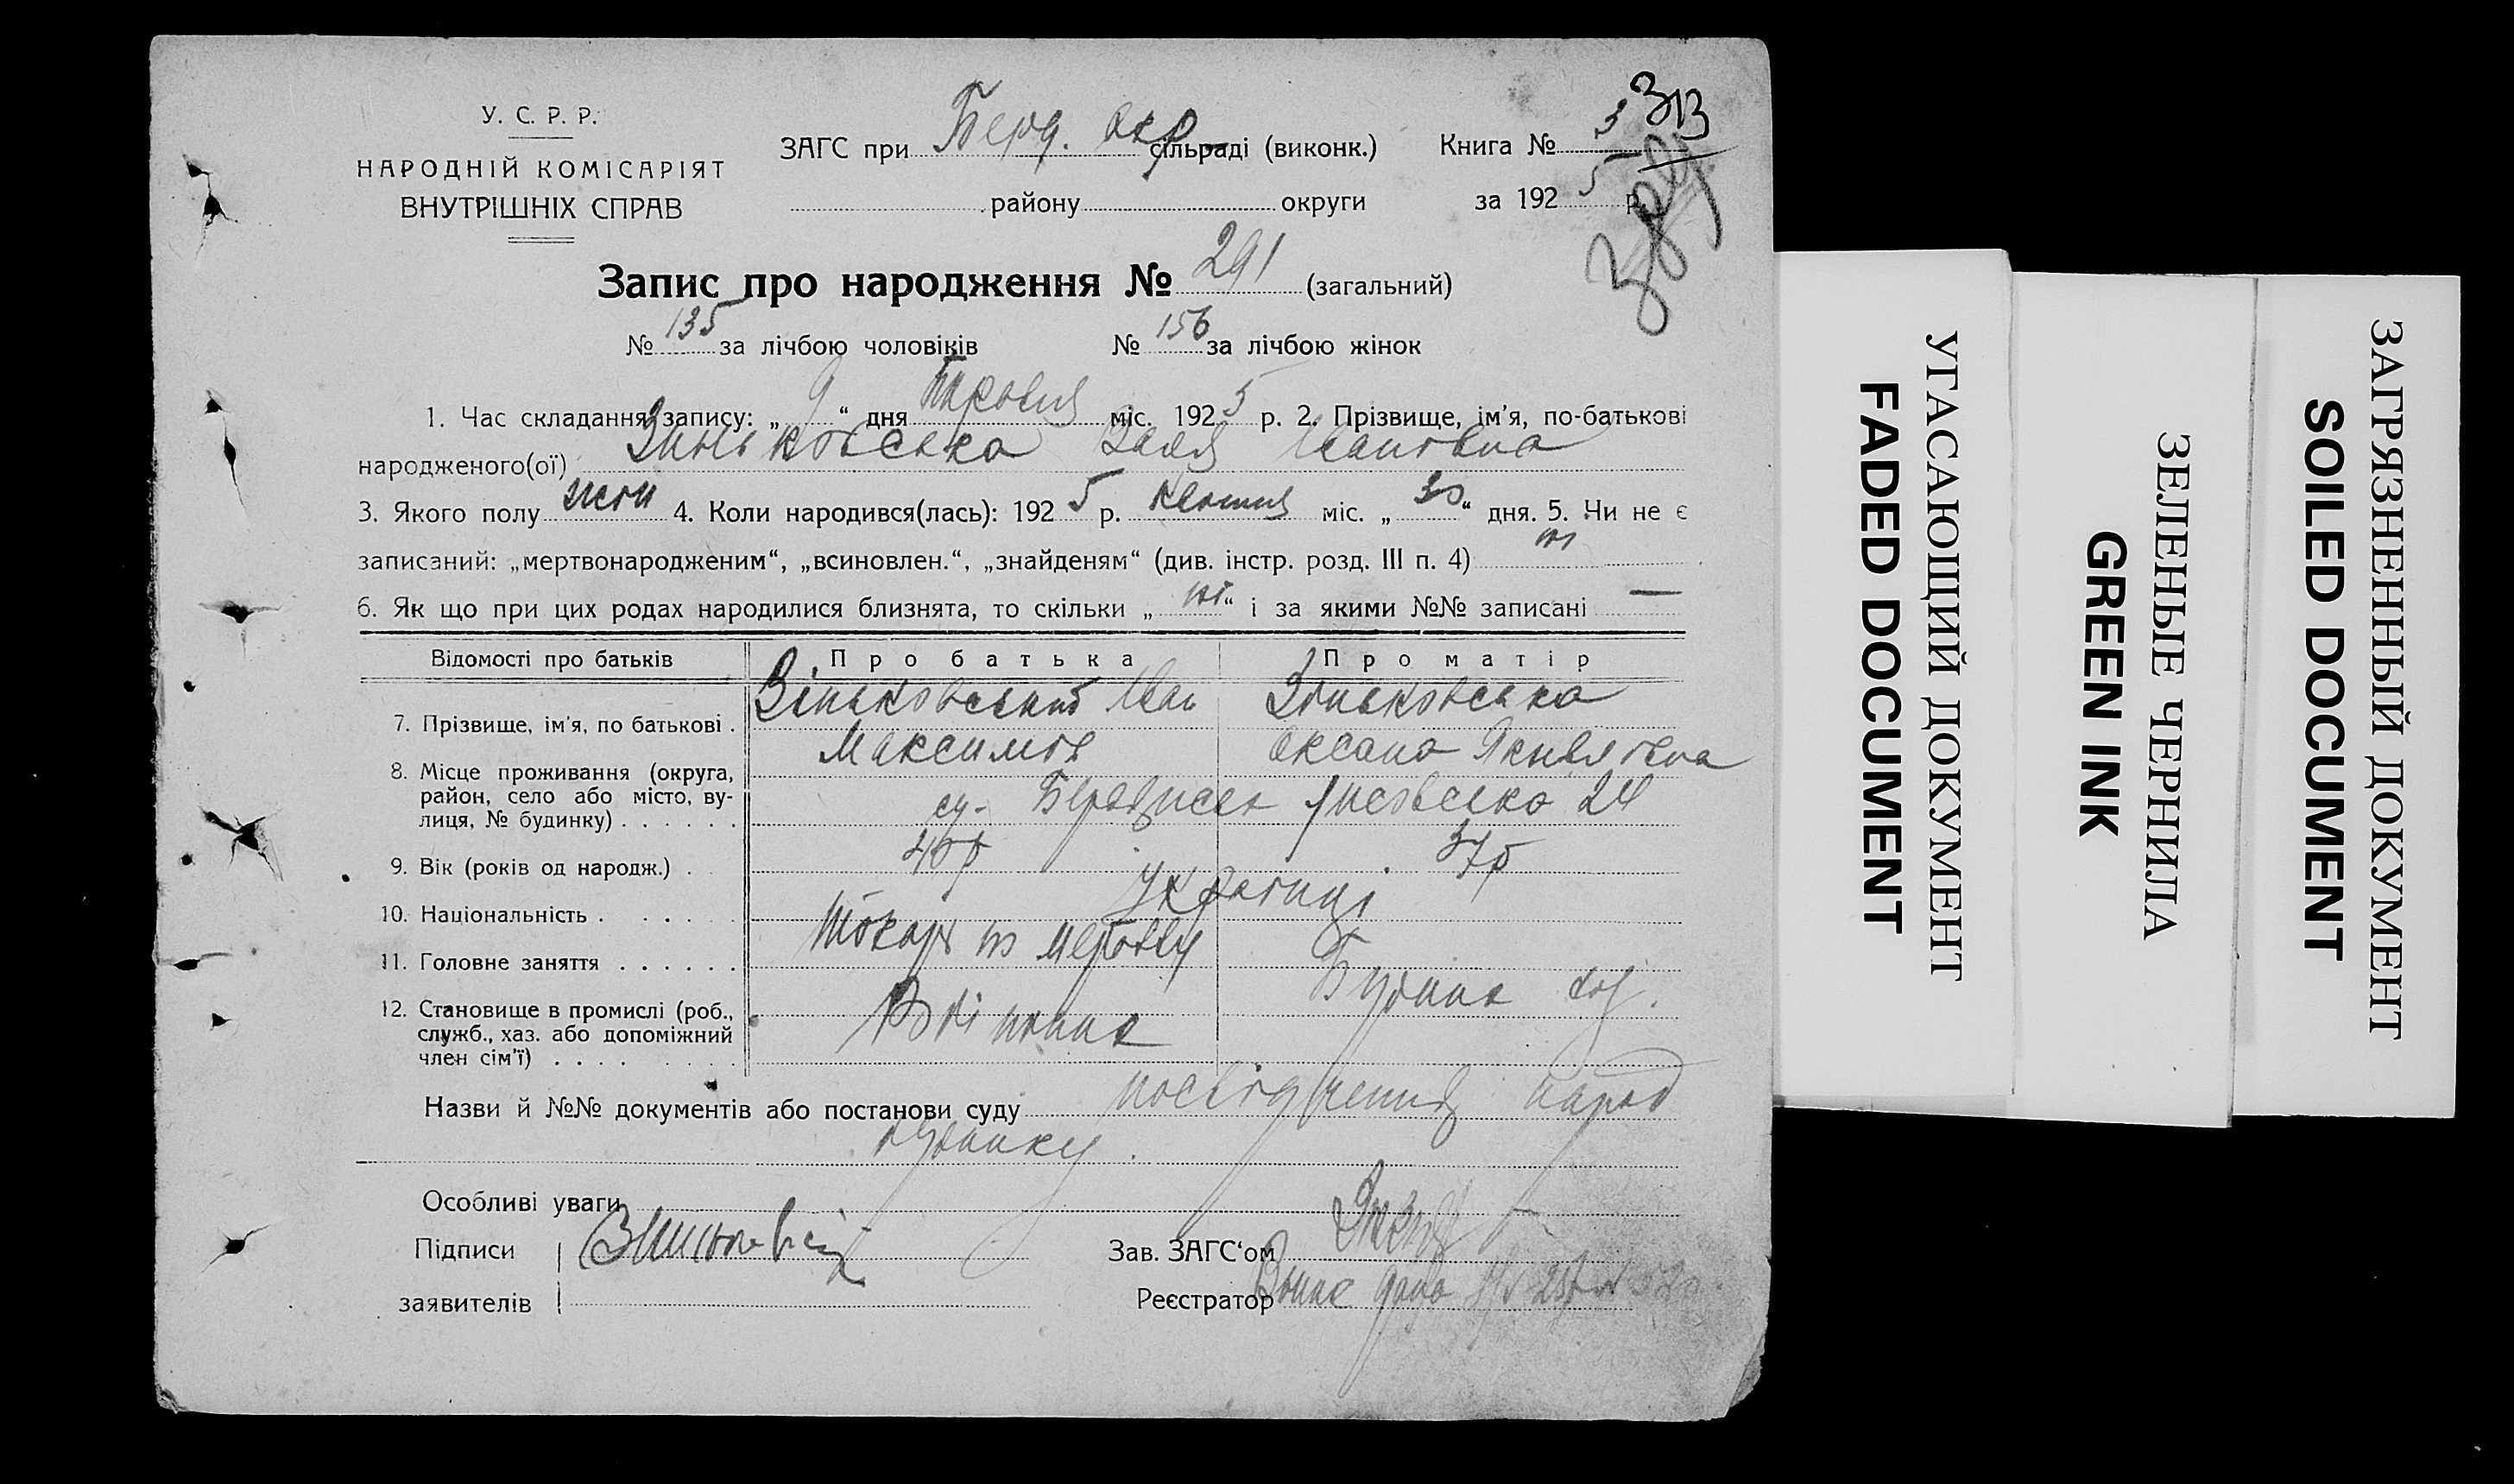 У. С. Р. Р.
НАРОДНІЙ КОМІСАРІЯТ
ВНУТРІШНІХ СПРАВ
ЗАГС при Берд. окр. сільраді (виконк.) Книга № 3
313
району округи за 1925 р.
Запис про народження № 291 (загальний)
№ 135 за лічбою чоловіків № 156 за лічбою жінок
1. Час складання запису: „9“ дня Травня міс. 1925 р. 2. Прізвище, ім'я, по-батькові
народженого(ої) Зиньковська Івановна
3. Якого полу жін 4. Коли народився(лась): 1925 р. Квітня міс. „30“ дня. 5. Чи не є
записаний: „мертвонародженим“, „всиновлен.“, „знайденям“ (див. інстр. розд. III п. 4) ні
6. Як що при цих родах народилися близнята, то скільки „ні“ і за якими №№ записані —
Відомості про батьків Про батька Про матір
7. Прізвище, ім'я, по батькові . Зіньковський Іван Зіньковська
Максимов Оксана Яківловна
8. Місце проживання (округа,
район, село або місто, ву-
лиця, № будинку) . . . . . . Бердянськ 24
9. Вік (років од народж.) . 37р
10. Національність . . . . . Українці
11. Головне заняття . . . . . . Токарь по металу
12. Становище в промислі (роб.,
служб., хаз. або допоміжний
член сім'ї) . . . . . . . . Робітник
Назви й №№ документів або постанови суду посвідчення народ
будинку.
Особливі уваги
Підписи
заявителів
Зав. ЗАГС'ом
Реєстратор
УГАСАЮЩИЙ ДОКУМЕНТ
FADED DOCUMENT
ЗЕЛЕНЫЕ ЧЕРНИЛА
GREEN INK
ЗАГРЯЗНЕННЫЙ ДОКУМЕНТ
SOILED DOCUMENT